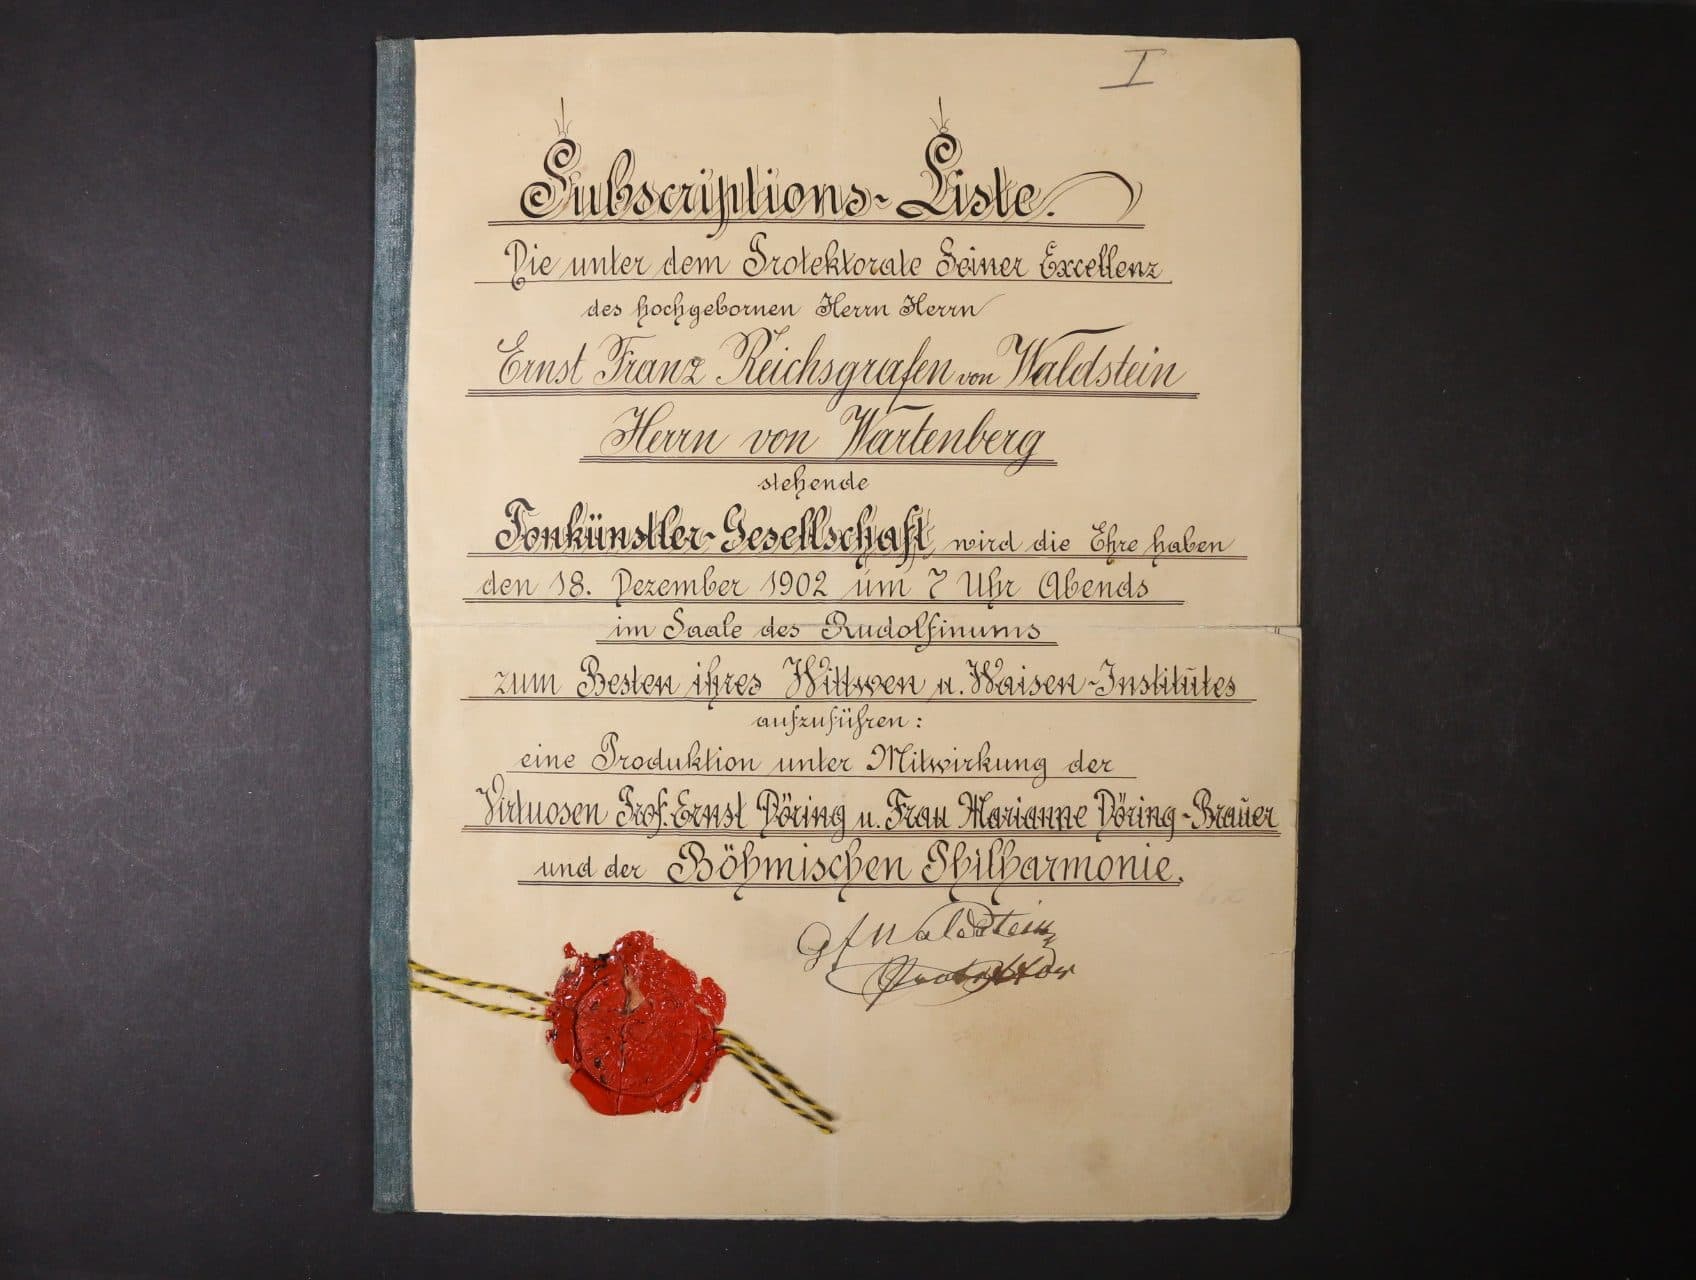 I
Subscriptions-Liste.
Die unter dem Protektorate Seiner Excellenz
des hochgebornen Herrn Herrn
Ernst Franz Reichsgrafen von Waldstein
Herrn von Wartenberg
stehende
Tonkünstler-Gesellschaft wird die Ehre haben
den 18. Dezember 1902 um 7 Uhr Abends
im Saale des Rudolfinums
zum Besten ihres Wittwen u. Waisen-Institutes
aufzuführen:
eine Produktion unter Mitwirkung der
Virtuosen Prof. Ernst Döring u. Frau Marianne Döring-Brauer
und der Böhmischen Philharmonie.
Waldstein
Protektor